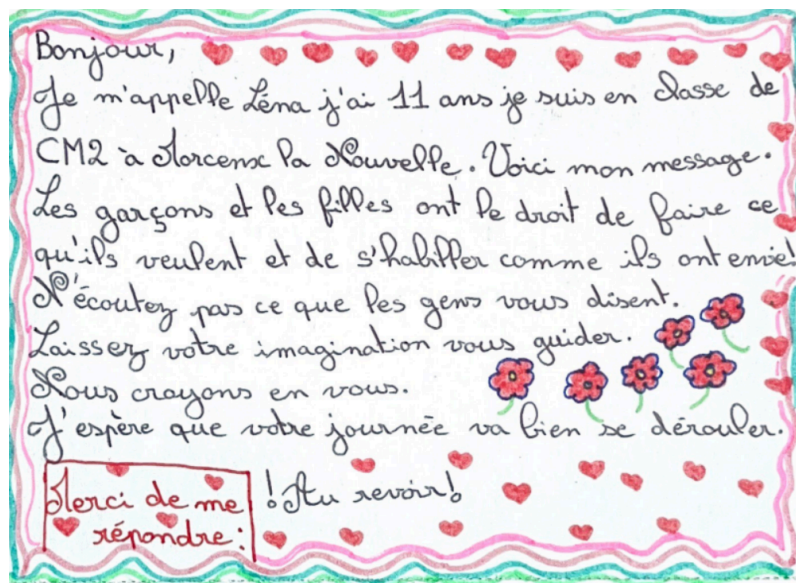 Bonjour,
Je m'appelle Léna j'ai 11 ans je suis en classe de
CM2 à Morcenx la Nouvelle. Voici mon message.
Les garçons et les filles ont le droit de faire ce
qu'ils veulent et de s'habiller comme ils ont envie!
N'écoutez pas ce que les gens vous disent.
Laissez votre imagination vous guider.
Nous crayons en vous.
J'espère que votre journée va bien se dérouler.
Merci de me
répondre:
! Au revoir!